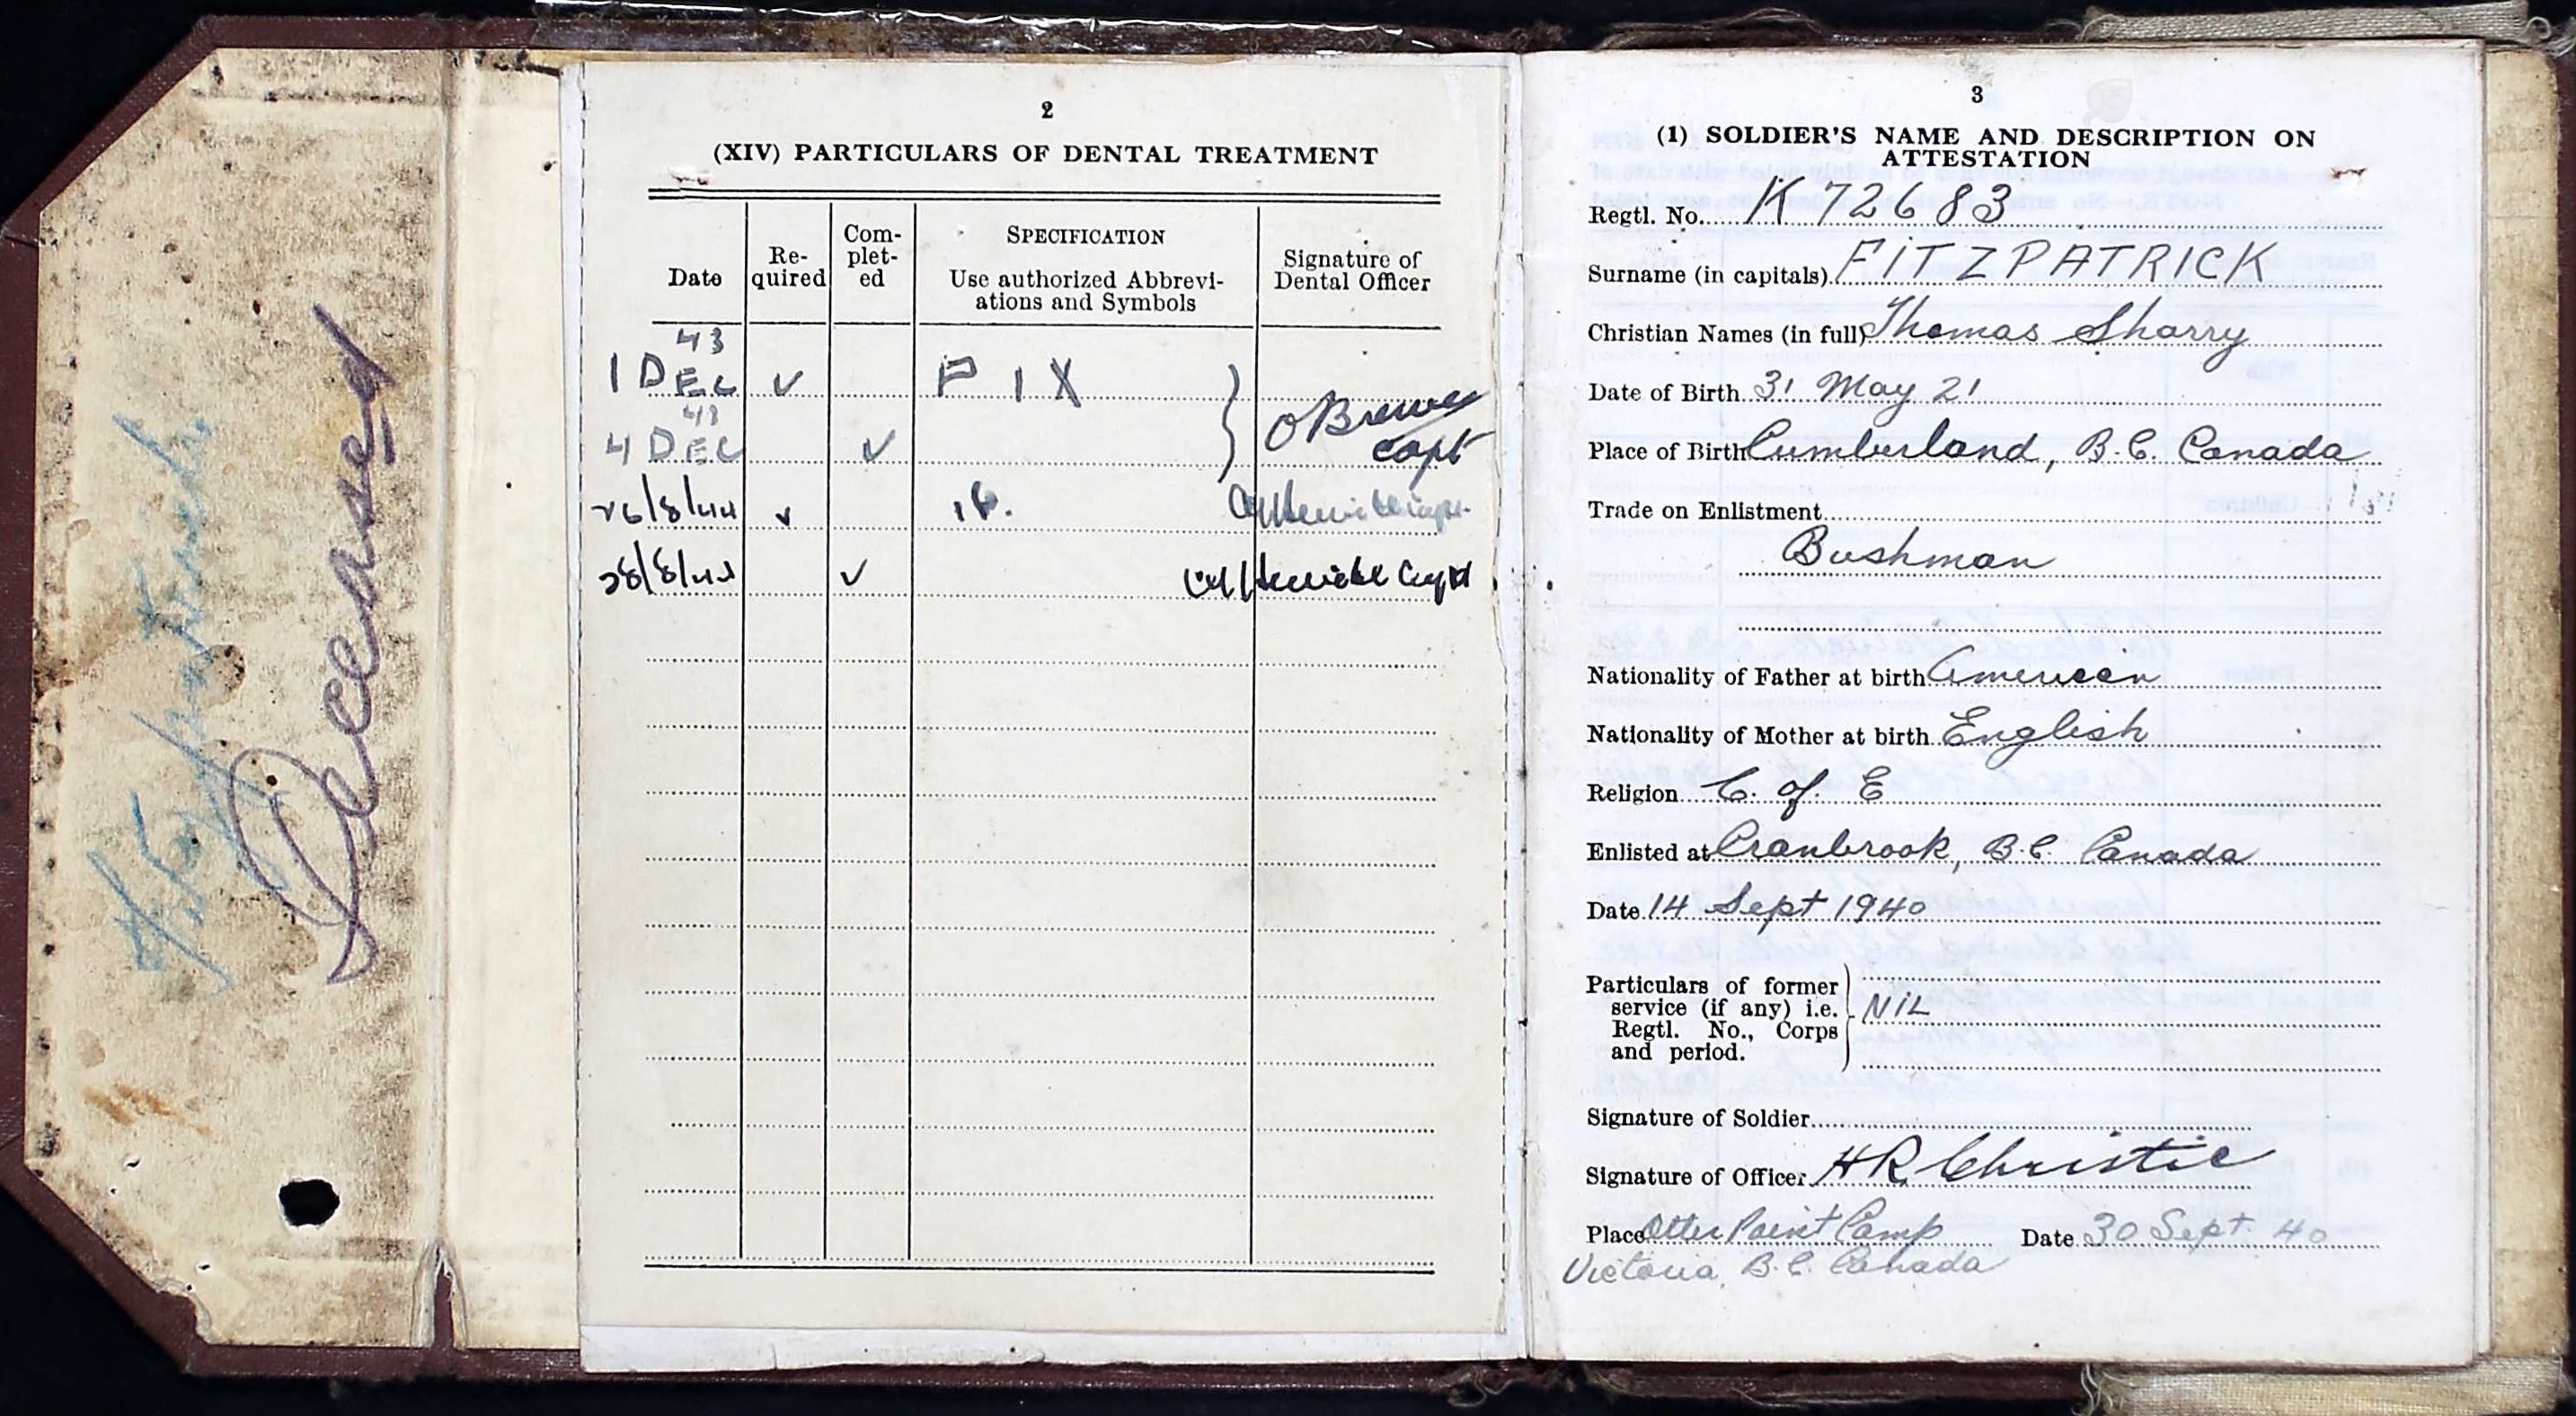 Fitzpatrick
Deceased
2
(XIV) PARTICULARS OF DENTAL TREATMENT
Date
Re-
quired
Com-
plet-
ed
SPECIFICATION
Use authorized Abbrevi-
ations and Symbols
Signature of
Dental Officer
1 DEC 43 ✓ P I X
4 DEC 43 ✓ Capt
26/8/44 ✓
28/8/44 ✓ Capt
3
(1) SOLDIER'S NAME AND DESCRIPTION ON
ATTESTATION
Regtl. No. K 72683
Surname (in capitals) FITZPATRICK
Christian Names (in full) Thomas Sharry
Date of Birth 31 May 21
Place of Birth Cumberland, B.C. Canada
Trade on Enlistment
Bushman
Nationality of Father at birth American
Nationality of Mother at birth English
Religion C. of E
Enlisted at Cranbrook, B.C. Canada
Date 14 Sept 1940
Particulars of former
service (if any) i.e.
Regtl. No., Corps
and period.
NIL
Signature of Soldier
Signature of Officer HR Christie
Place Otter Point Camp Date 30 Sept. 40
Victoria, B.C. Canada